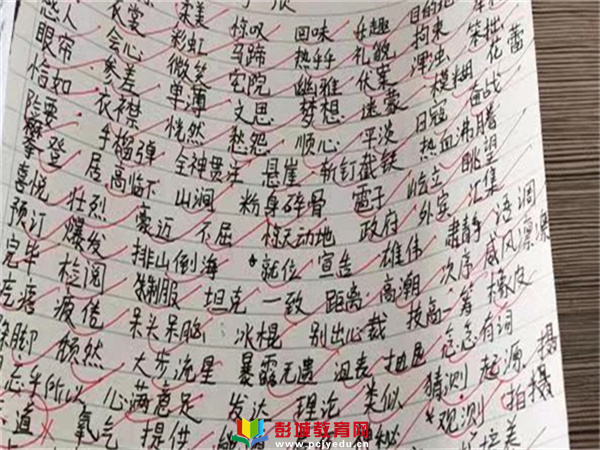 感人 衣裳 柔美 惊叹 回味 乐趣 目的地 笨拙
眼帘 会心 彩虹 马蹄 热乎乎 礼貌 拘束 花蕾
恰如 参差 微笑 宅院 幽雅 伏案 昆虫 模糊 奋战
险要 衣襟 单薄 文思 梦想 迷蒙 日寇 热血沸腾
攀登 手榴弹 恍然 愁怨 顺心 平淡 斩钉截铁 眺望
喜悦 居高临下 全神贯注 悬崖 屹立 汇集
预订 壮烈 山涧 粉身碎骨 电子 外宾 语调
完毕 爆发 豪迈 不屈 惊天动地 政府 肃静 威风凛凛
疙瘩 检阅 排山倒海 就位 宣告 雄伟 次序 橡皮
跺脚 疲倦 制服 坦克 一致 距离 高潮
忘乎所以 颓然 呆头呆脑 冰棍 别出心裁 技高一筹 念念有词
道 心满意足 大步流星 暴露无遗 沮丧 起源 摄
氧气 提供 发达 理论 类似 猜测 观测 拍摄
彭城教育网
www.pcjyedu.cn